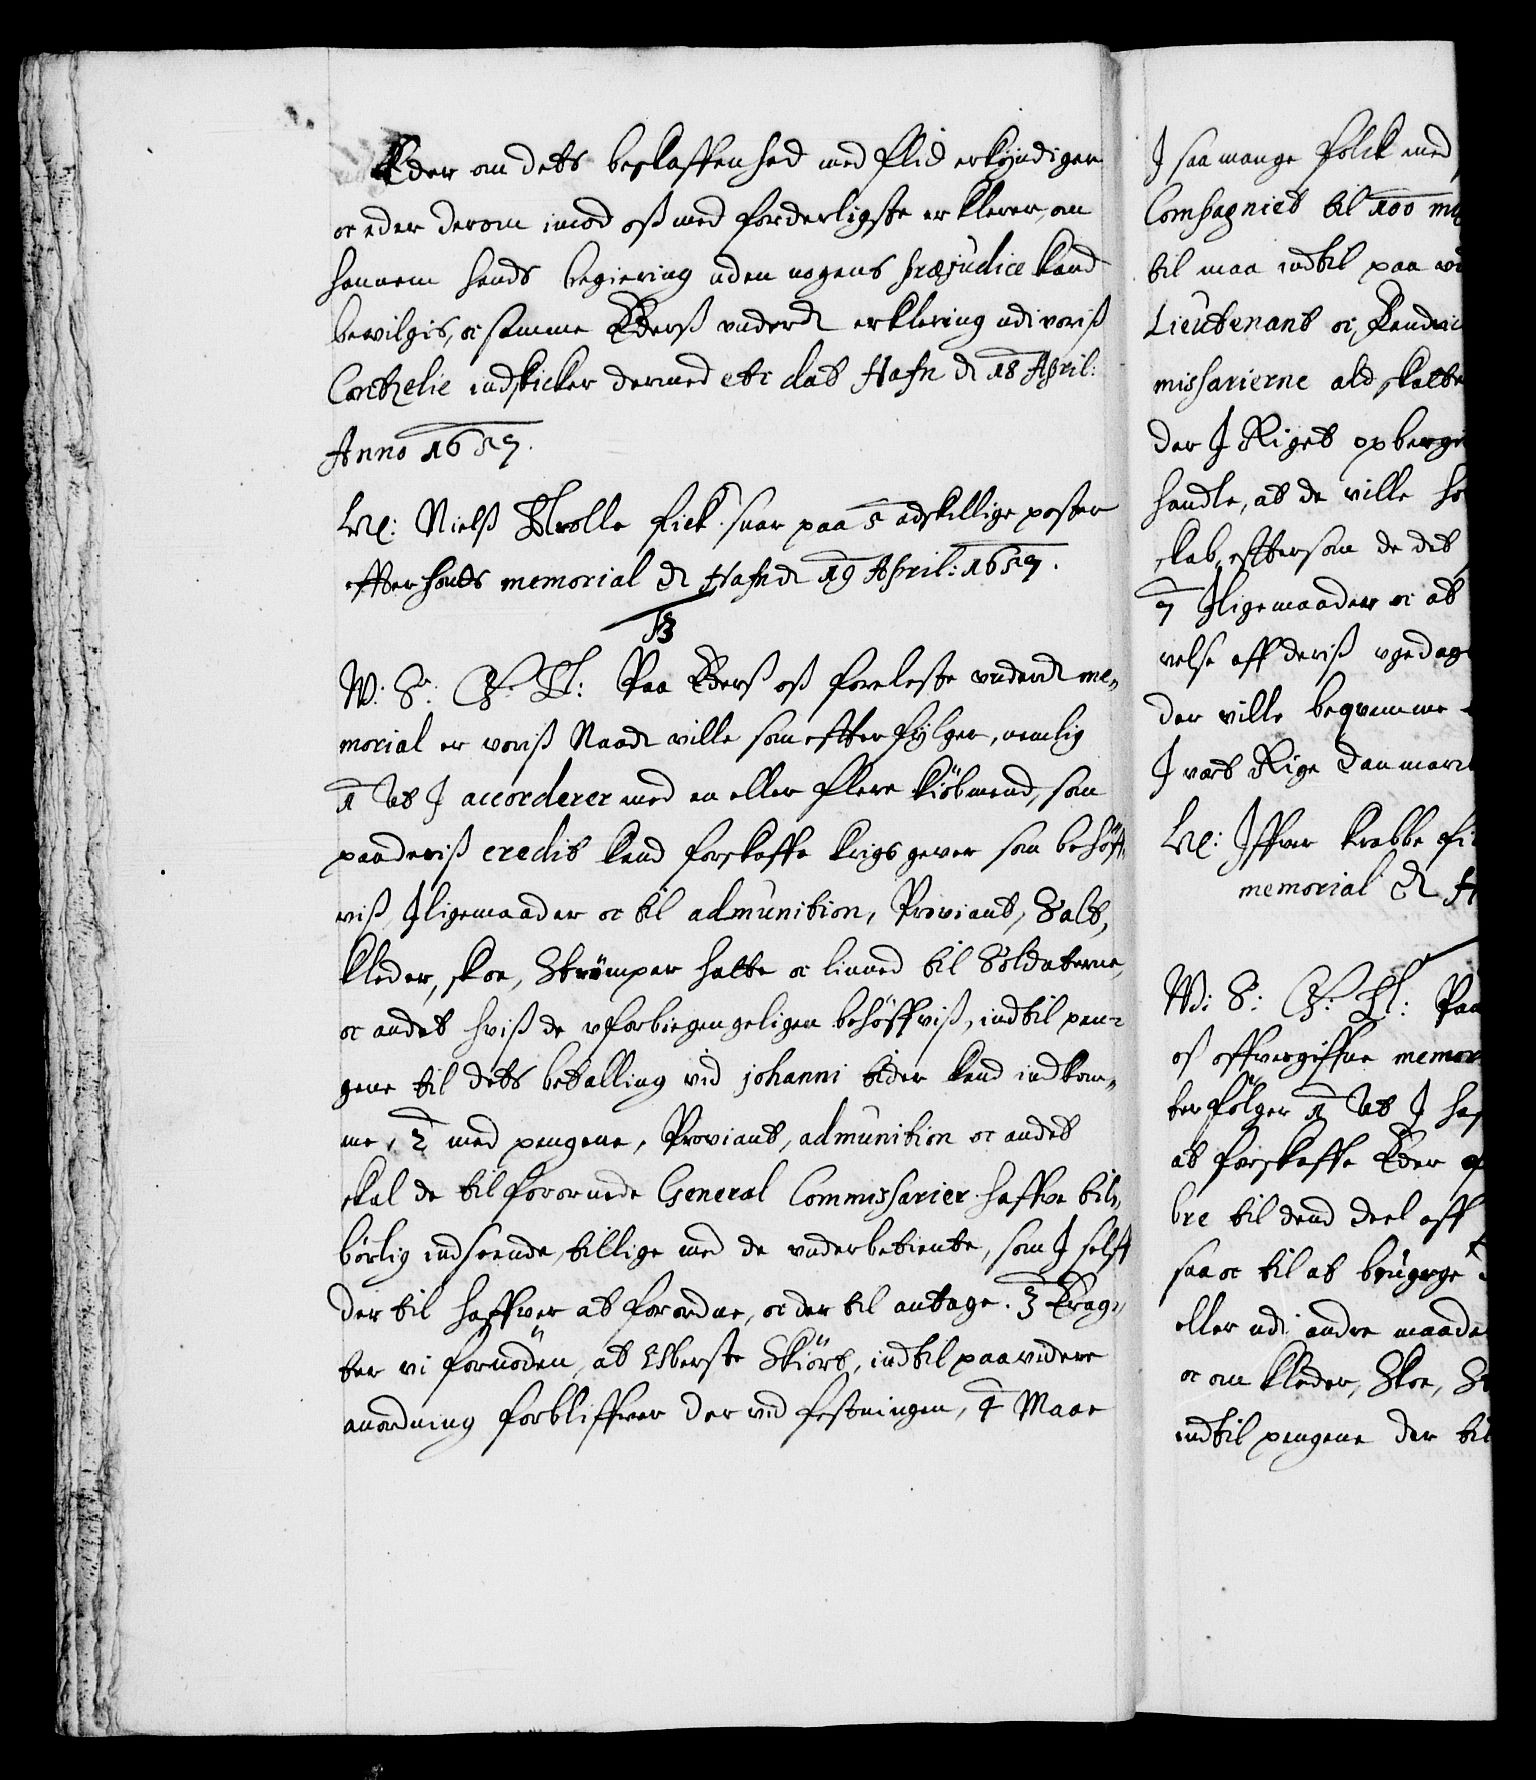 Eder om dets beskaffenhed med flid erkyndiger
oc eder derom imod oß med forderligste erklerer, om
hannem hands begiering uden nogens præjudice kand
bevilgis, oc samme Eders underd erklering udi voris
Cantzelie indskicker dermed etc dat Hafn d 18 April:
Anno 1657.
Nielß Trolle fick suar paa 5 adskillige poster
effter hands memorial d Hafn d 19 April: 1657.
W. S. G. T: Paa Eders oß foreleste underd me„
morial er voris Naad: ville som effterfylger, nemlig
1 At J accorderer med en eller flere kiöbmend, som
paa deris credit kand forskaffe krigs gever som behöf„
vis Jligemaader oc til admunition, Proviant, Salt,
kleder, skoe, Strömper hatte oc linned til Soldaterne,
oc andet hviß de uforbiegengeligen behöffvis, indtil pen„
gene til dets betalling vid johanni tider kand indkom„
me, 2 med pengene, Proviant, admunition oc andet
skal de til forornede General Commissarier haffve til„
börlig indseende, tillige med de underbetiente, som J selff
der til haffver at forordne, oc der til antage. 3 Erag„
ter vi fornöden, at Oberste Skiört, indtil paa videre
anordning forbliffver der vid festningen, 4 Maae
J saa mange folck med
Compagniet til 100 
til maa indtil paa 
Lieutenant oc 
missarierne ald 
der J Riget opberge
handle, at de ville 
skab, effttersom de det
7 Jligemaader oc at
velse aff deris 
der ville beqvemme
J vort Rige Danmarck
Jffver Krabbe 
memorial d H
W: S: G: T: Paa
oß offvergiffne memor
ter fölger 1 At J 
at forskaffe Eder 
bre til dend deel aff
saa oc til at 
eller udi andre maade
oc om kleder, Skoe, 
indtil pengene der til